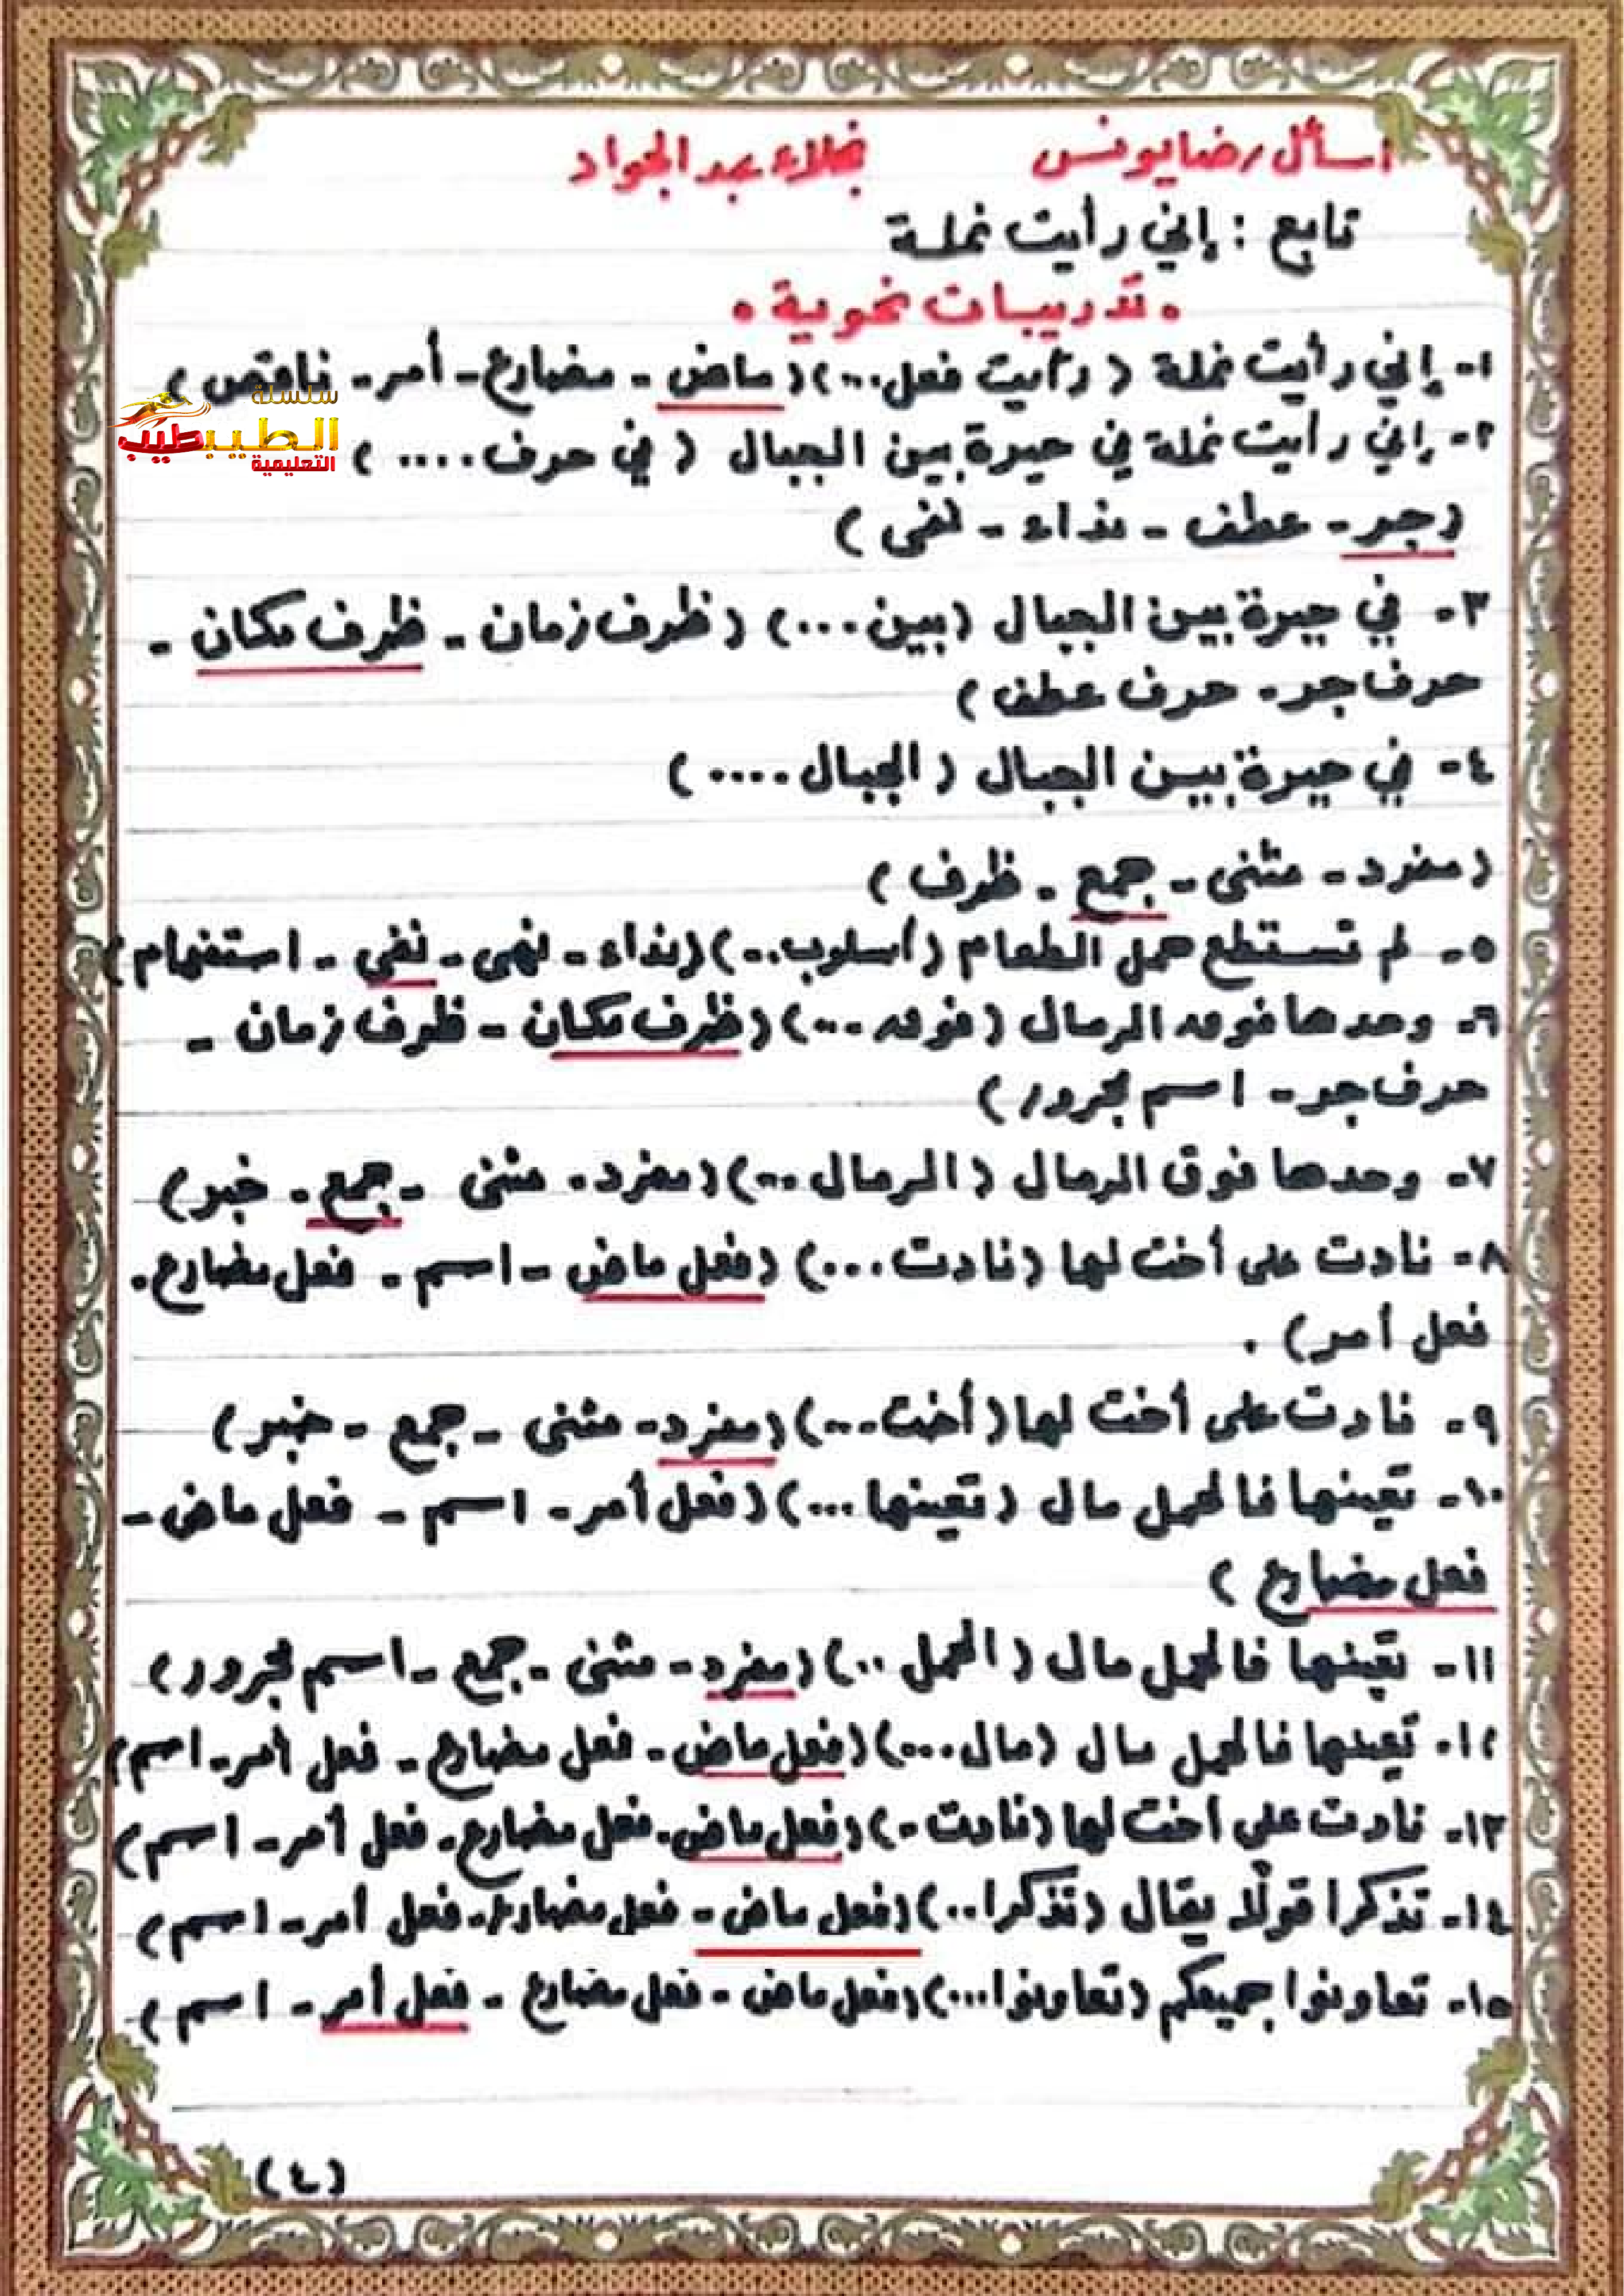 اسأل رضا يونس نجلاء عبد الجواد
تابع : إني رأيت نملة
• تدريبات نحوية •
١- إني رأيت نملة ( رأيت فعل...) ( ماض - مضارع - أمر - ناقص )
سلسلة
الطيب طيب
التعليمية
٢- إني رأيت نملة في حيرة بين الجبال ( في حرف .... )
( جر - عطف - نداء - نفى )
٣- في حيرة بين الجبال ( بين ... ) ( ظرف زمان - ظرف مكان -
حرف جر - حرف عطف )
٤- في حيرة بين الجبال ( الجبال .... )
( مفرد - مثنى - جمع - ظرف )
٥- لم تستطع حمل الطعام ( أسلوب.. ) ( نداء - نهى - نفي - استفهام )
٦- وحدها فوق الرمال ( فوق ... ) ( ظرف مكان - ظرف زمان -
حرف جر - اسم مجرور )
٧- وحدها فوق الرمال ( الرمال ... ) ( مفرد - مثنى - جمع - خبر )
٨- نادت على أخت لها ( نادت ... ) ( فعل ماض - اسم - فعل مضارع -
فعل أمر ) .
٩- نادت على أخت لها ( أخت ... ) ( مفرد - مثنى - جمع - خبر )
١٠- تعينها فالحمل مال ( تعينها ... ) ( فعل أمر - اسم - فعل ماض -
فعل مضارع )
١١- تعينها فالحمل مال ( الحمل .. ) ( مفرد - مثنى - جمع - اسم مجرور )
١٢- تعينها فالحمل مال ( مال .... ) ( فعل ماض - فعل مضارع - فعل أمر - اسم )
١٣- نادت على أخت لها ( نادت - ) ( فعل ماض - فعل مضارع - فعل أمر - اسم )
١٤- تذكرا قولًا يقال ( تذكرا .. ) ( فعل ماض - فعل مضارع - فعل أمر - اسم )
١٥- تعاونوا جميعكم ( تعاونوا ... ) ( فعل ماض - فعل مضارع - فعل أمر - اسم )
(٤)